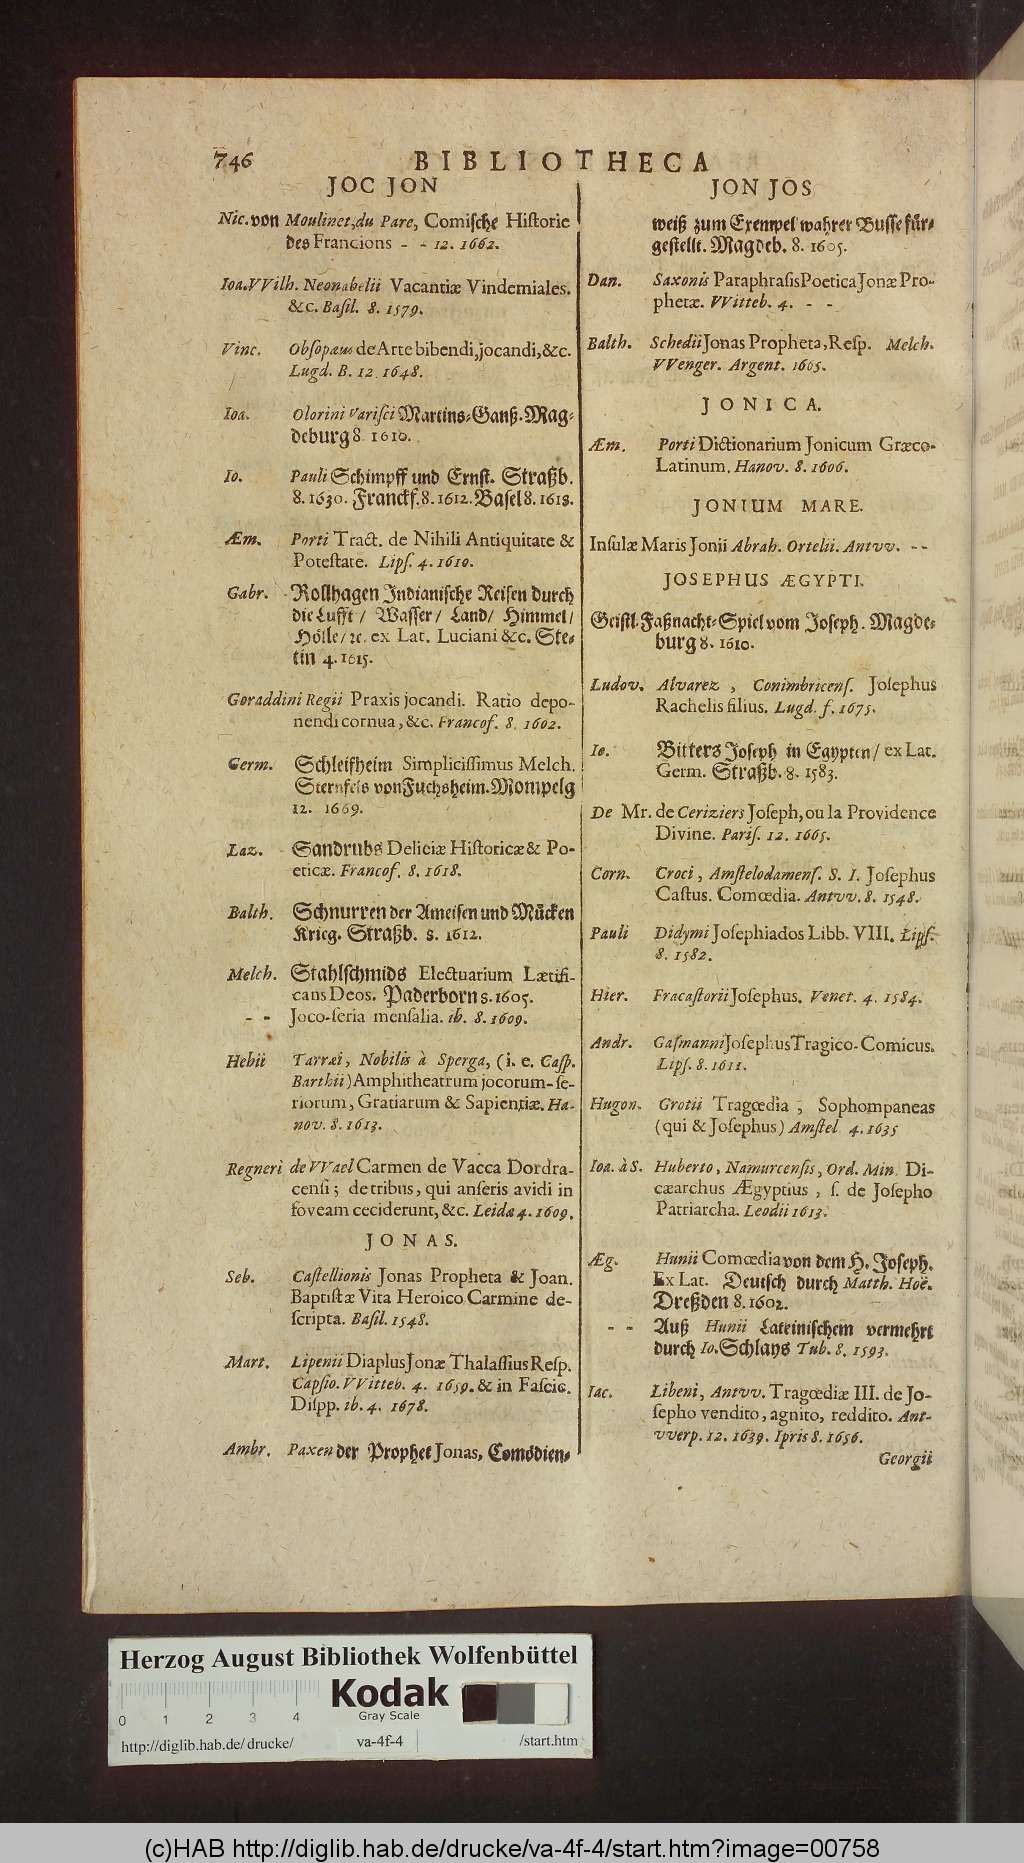 746
BIBLIOTHECA
JOC JON
Nic. von Moulinet, du Pare, Comiſche Hiſtorie
des Francions - - 12. 1662.
Ioa. VVilh. Neonabelii Vacantiæ Vindemiales.
&c. Baſil. 8. 1579.
Vinc. Obſopæus de Arte bibendi, jocandi, &c.
Lugd. B. 12. 1648.
Ioa. Olorini Variſci Martins-Ganß. Mag-
deburg 8. 1610.
Io. Pauli Schimpff und Ernſt. Straßb.
8. 1630. Franckf. 8. 1612. Baſel 8. 1618.
Æm. Porti Tract. de Nihili Antiquitate &
Poteſtate. Lipſ. 4. 1610.
Gabr. Rollhagen Indianiſche Reiſen durch
die Lufft / Waſſer / Land / Himmel /
Hölle / ꝛc. ex Lat. Luciani &c. Ste-
tin 4. 1615.
Goraddini Regii Praxis jocandi. Ratio depo-
nendi cornua, &c. Francof. 8. 1602.
Germ. Schleifheim Simpliciſſimus Melch.
Sternfels von Fuchsheim. Mompelg
12. 1669.
Laz. Sandrubs Deliciæ Hiſtoricæ & Po-
eticæ. Francof. 8. 1618.
Balth. Schnurren der Ameiſen und Mücken
Krieg. Straßb. 8. 1612.
Melch. Stahlſchmids Electuarium Lætifi-
cans Deos. Paderborn 8. 1605.
- - Joco-ſeria menſalia. ib. 8. 1609.
Hebii Tarræi, Nobilis à Sperga, (i. e. Caſp.
Barthii) Amphitheatrum jocorum-ſe-
riorum, Gratiarum & Sapientiæ. Ha-
nov. 8. 1613.
Regneri de VVael Carmen de Vacca Dordra-
cenſi; de tribus, qui anſeris avidi in
foveam ceciderunt, &c. Leida 4. 1609.
JONAS.
Seb. Caſtellionis Jonas Propheta & Joan.
Baptiſtæ Vita Heroico Carmine de-
ſcripta. Baſil. 1548.
Mart. Lipenii Diaplus Jonæ Thalaſſius Reſp.
Capſio. VVitteb. 4. 1659. & in Faſcic.
Diſpp. ib. 4. 1678.
Ambr. Paxen der Prophet Jonas, Comödien-
JON JOS
weiß zum Exempel wahrer Buſſe für-
geſtellt. Magdeb. 8. 1605.
Dan. Saxonis Paraphraſis Poetica Jonæ Pro-
phetæ. VVitteb. 4. - -
Balth. Schedii Jonas Propheta, Reſp. Melch.
VVenger. Argent. 1605.
JONICA.
Æm. Porti Dictionarium Jonicum Græco-
Latinum. Hanov. 8. 1606.
JONIUM MARE.
Inſulæ Maris Jonii Abrah. Ortelii. Antvv. - -
JOSEPHUS ÆGYPTI.
Geiſtl. Faßnacht-Spiel vom Joſeph. Magde-
burg 8. 1610.
Ludov. Alvarez, Conimbricenſ. Joſephus
Rachelis filius. Lugd. f. 1675.
Io. Bitters Joſeph in Egypten / ex Lat.
Germ. Straßb. 8. 1583.
De Mr. de Ceriziers Joſeph, ou la Providence
Divine. Pariſ. 12. 1665.
Corn. Croci, Amſtelodamenſ. S. I. Joſephus
Caſtus. Comœdia. Antvv. 8. 1548.
Pauli Didymi Joſephiados Libb. VIII. Lipſ.
8. 1582.
Hier. Fracaſtorii Joſephus. Venet. 4. 1584.
Andr. Gaſmanni Joſephus Tragico-Comicus.
Lipſ. 8. 1611.
Hugon. Grotii Tragœdia, Sophompaneas
(qui & Joſephus) Amſtel 4. 1635
Ioa. à S. Huberto, Namurcenſis, Ord. Min. Di-
cæarchus Ægyptius, ſ. de Joſepho
Patriarcha. Leodii 1613.
Æg. Hunii Comœdia von dem H. Joſeph.
Ex Lat. Deutſch durch Matth. Hoë.
Dreßden 8. 1602.
- - Auß Hunii Lateiniſchem vermehrt
durch Io. Schlays Tub. 8. 1593.
Iac. Libeni, Antvv. Tragœdiæ III. de Jo-
ſepho vendito, agnito, reddito. Ant-
vverp. 12. 1639. Ipris 8. 1656.
Georgii
Herzog August Bibliothek Wolfenbüttel
Kodak
Gray Scale
0 1 2 3 4
http://diglib.hab.de/drucke/ va-4f-4 /start.htm
(c)HAB http://diglib.hab.de/drucke/va-4f-4/start.htm?image=00758